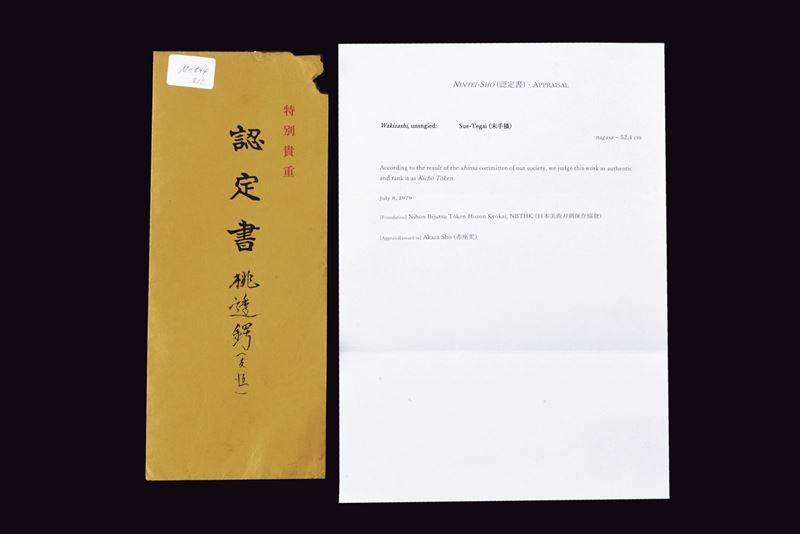 特別貴重
認定書
桃透鍔
NINTEI-SHO (認定書) - APPRAISAL
Wakizashi, unsngied: Sue-Tegai (末手掻)
nagasa – 52.4 cm
According to the result of the shinsa committee of our society, we judge this work as authentic
and rank it as Kichō Tōken.
July 8, 1979
[Foundation] Nihon Bijutsu Tōken Hozon Kyōkai, NBTHK (日本美術刀剣保存協會)
[Appraisal issued to] Akaza Shō (赤座奨)